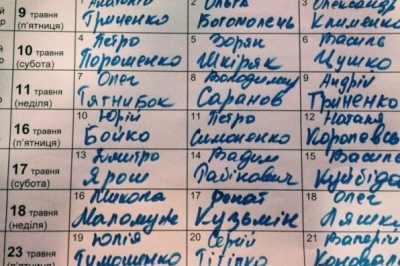 1 2 3
9 травня Анатолій Ольга Олександр
(п'ятниця) Гриценко Богомолець Клименко
4 5 6
10 травня Петро Зорян Василь
(субота) Порошенко Шкіряк Цушко
7 8 9
11 травня Олег Володимир Андрій
(неділя) Тягнибок Саранов Гриненко
10 11 12
16 травня Юрій Петро Наталя
(п'ятниця) Бойко Симоненко Королевсь
13 14 15
17 травня Дмитро Вадим Василь
(субота) Ярош Рабінович Куйбіда
16 17 18
18 травня Микола Ренат Олег
(неділя) Маломуж Кузьмін Ляшко
19 20 21
23 травня Юлія Сергій Валерій
(п'ятниця) Тимошенко Тігіпко Коновал